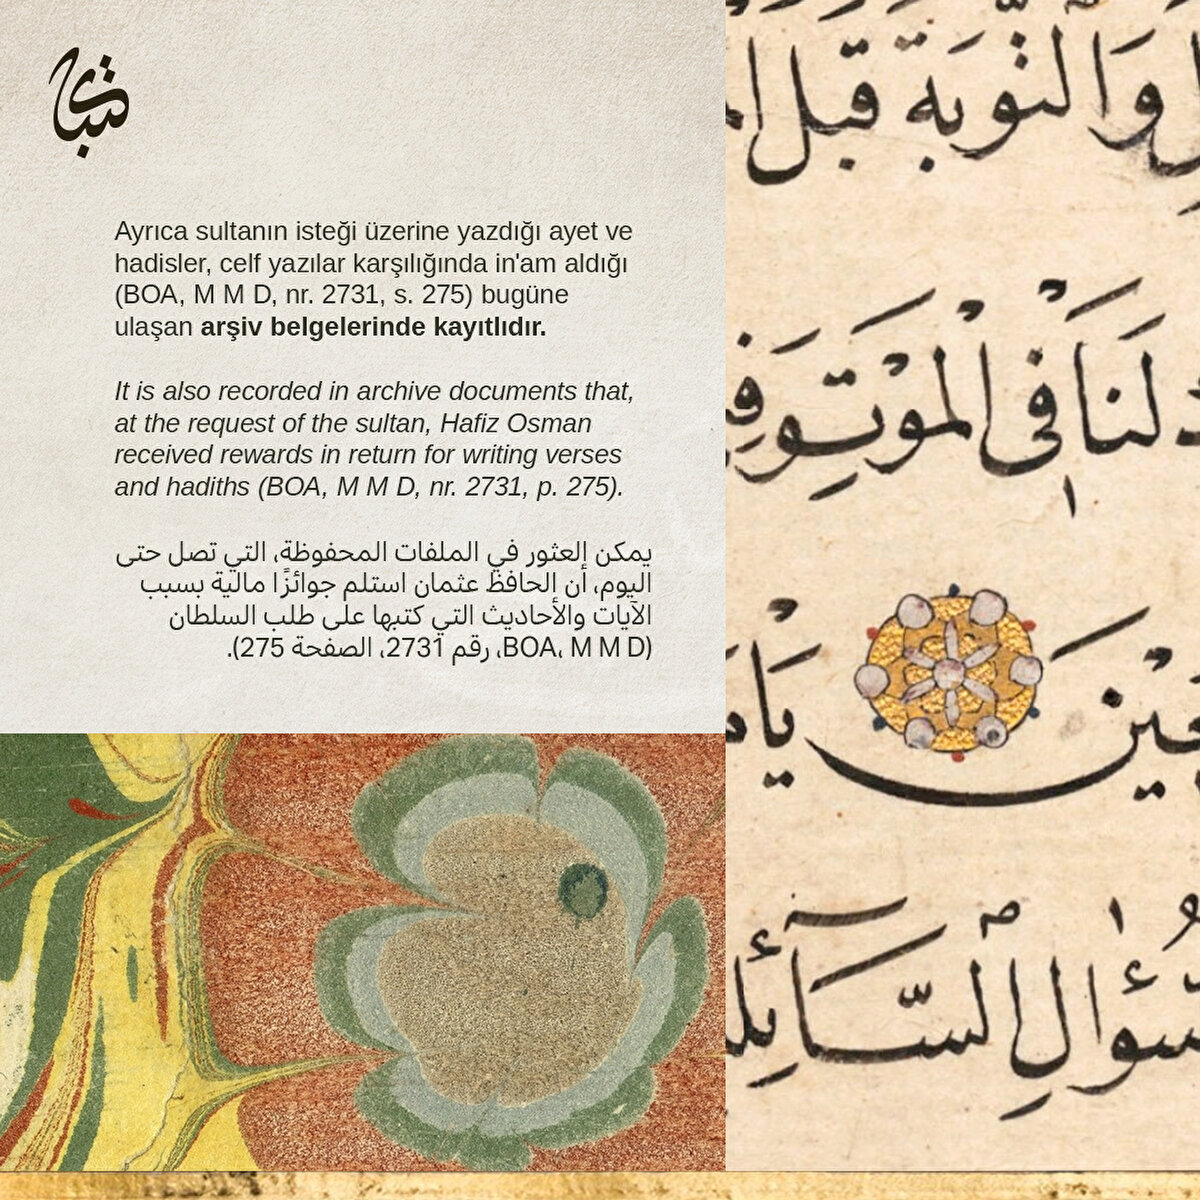 Ayrıca sultanın isteği üzerine yazdığı ayet ve
hadisler, celf yazılar karşılığında in'am aldığı
(BOA, M M D, nr. 2731, s. 275) bugüne
ulaşan arşiv belgelerinde kayıtlıdır.
It is also recorded in archive documents that,
at the request of the sultan, Hafiz Osman
received rewards in return for writing verses
and hadiths (BOA, M M D, nr. 2731, p. 275).
يمكن العثور في الملفات المحفوظة، التي تصل حتى
اليوم، أن الحافظ عثمان استلم جوائزًا مالية بسبب
الآيات والأحاديث التي كتبها على طلب السلطان
(BOA، M M D، رقم 2731، الصفحة 275).
وَالتَّوْبَةِ قَبْلَ
لَنَا فِي الْمَوْتِ وَفِي
يَا
سُؤَالِ السَّائِلِ